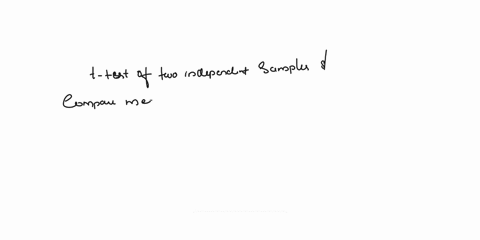 t-test of two independent samples &
Compare me